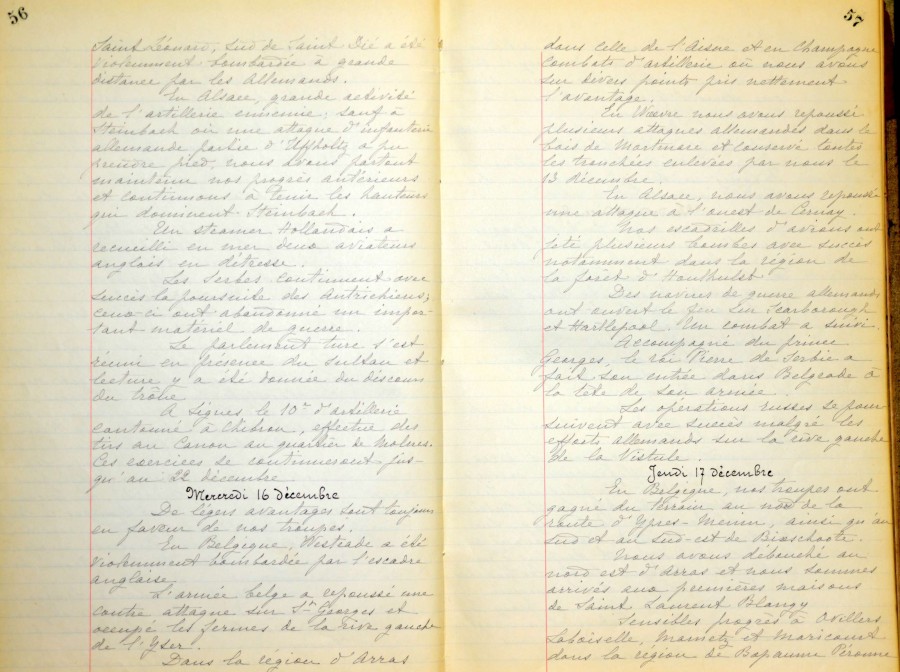 56
Saint Léonard, sud de Saint Dié a été
violemment bombardée à grande
distance par les Allemands.
En Alsace, grande activité
de l'artillerie ennemie; sauf à
Steinbach où une attaque d'infanterie
allemande partie d'Uffholtz a pu
prendre pied, nous avons partout
maintenu nos progrès antérieurs
et continuons à tenir les hauteurs
qui dominent Steinbach.
Un steamer Hollandais a
recueilli en mer deux aviateurs
anglais en détresse.
Les Serbes continuent avec
succès la poursuite des Autrichiens;
ceux-ci ont abandonné un impor-
tant matériel de guerre.
Le parlement turc s'est
réuni en présence du sultan et
lecture y a été donnée du discours
du trône
A Signes, le 10e d'artillerie
cantonné à Chibron, effectue des
tirs au Canon au quartier de Molières.
Ces exercices se continueront jus-
qu'au 22 décembre
Mercredi 16 décembre
De légers avantages sont toujours
en faveur de nos troupes.
En Belgique, Westende a été
violemment bombardée par l'escadre
anglaise.
L'armée belge a repoussé une
contre attaque sur St Georges et
occupé les fermes de la rive gauche
de l'Yser.
Dans la région d'Arras
57
dans celle de l'Aisne et en Champagne
combats d'artillerie où nous avons
sur divers points pris nettement
l'avantage.
En Woëvre nous avons repoussé
plusieurs attaques allemandes dans le
bois de Mortmare et conservé toutes
les tranchées enlevées par nous le
13 décembre.
En Alsace, nous avons repoussé
une attaque à l'ouest de Cernay.
Nos escadrilles d'avions ont
jeté plusieurs bombes avec succès
notamment dans la région de
la forêt d'Houthulst
Des navires de guerre allemands
ont ouvert le feu sur Scarborough
et Hartlepool. Un combat a suivi.
Accompagné du prince
Georges, le roi Pierre de Serbie a
fait son entrée dans Belgrade à
la tête de son armée.
Les opérations russes se pour-
suivent avec succès malgré les
efforts allemands sur la rive gauche
de la Vistule.
Jeudi 17 décembre
En Belgique, nos troupes ont
gagné du terrain au nord de la
route d'Ypres-Menin, ainsi qu'au
sud et au sud-est de Bixschoote.
Nous avons débouché au
nord est d'Arras et nous sommes
arrivés aux premières maisons
de Saint Laurent Blangy
Sensibles progrès à Ovillers
Laboiselle, Mametz et Maricourt
dans la région de Bapaume Péronne